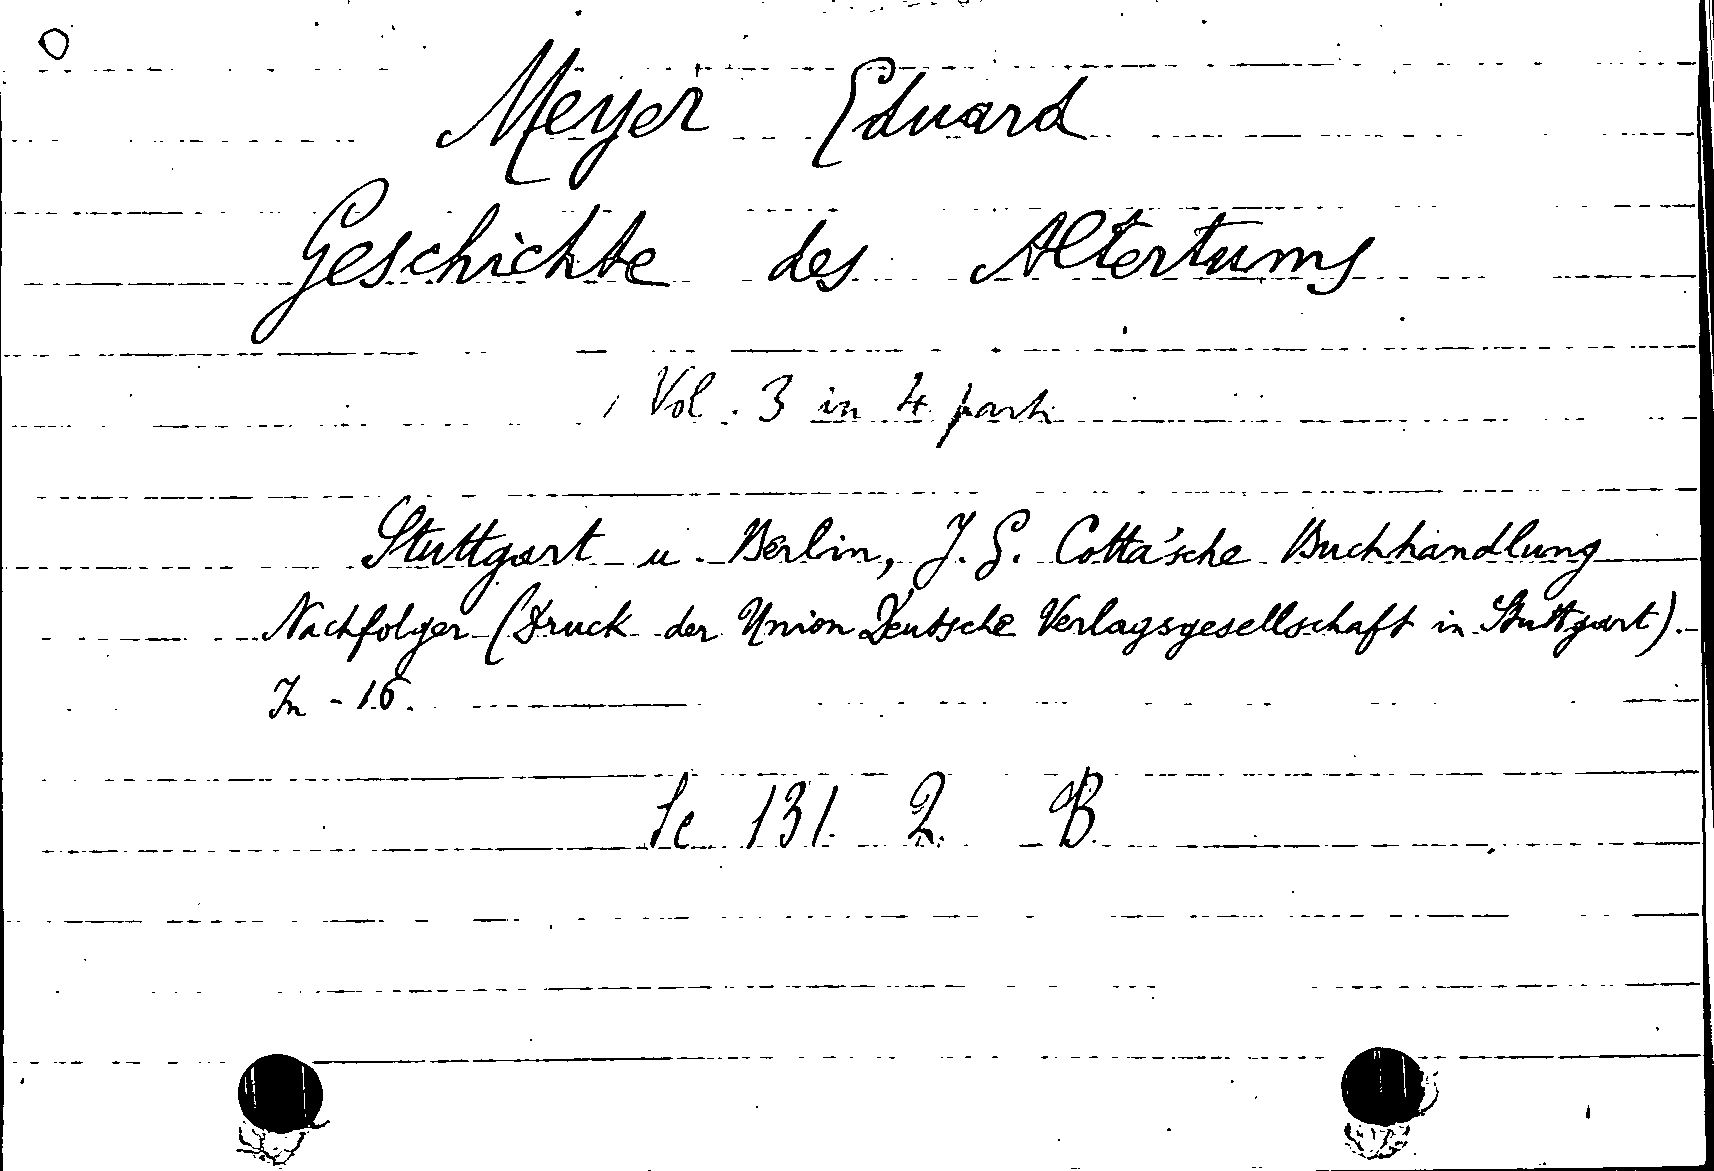 Meyer Eduard
Geschichte des Altertums
Vol. 3 in 4 part.
Stuttgart u. Berlin, J. G. Cotta'sche Buchhandlung
Nachfolger (Druck der Union Deutsche Verlagsgesellschaft in Stuttgart).
In - 16.
Sc 131. 2. B.